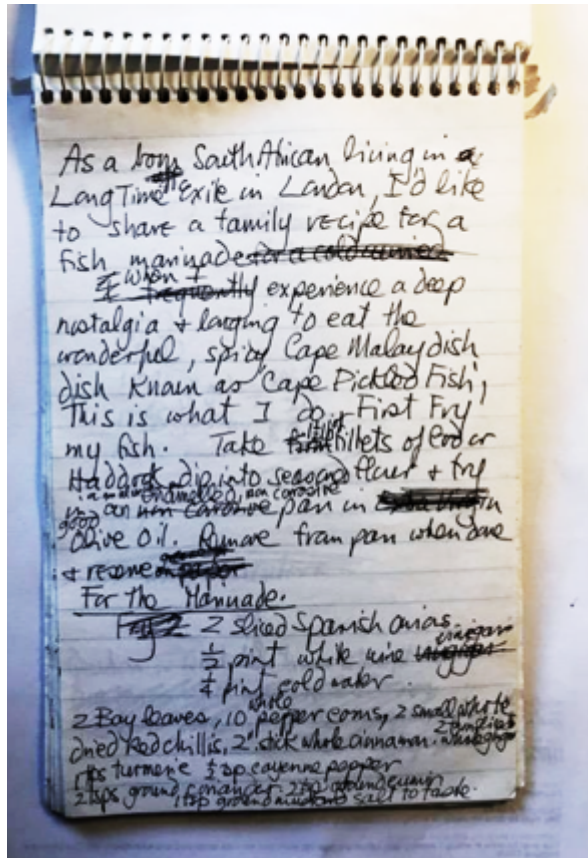 As a born South African living in a
Long Time Exile in London, I'd like
to share a family recipe for a
fish marinade for a cold curried
When I frequently experience a deep
nostalgia & longing to eat the
wonderful, spicy Cape Malay dish
dish Known as 'Cape Pickled Fish',
This is what I do. First Fry
my fish. Take firm fillets of Cod or
Haddock, dip into seasoned flour & fry
enamelled, non corrosive
in an non corrosive pan in extra virgin
good
Olive Oil. Remove from pan when done
& reserve on paper
For the Marinade.
Fry 2 2 sliced Spanish onions
vinegar
½ pint white wine vinegar
¼ pint cold water.
whole
2 Bay leaves, 10 pepper corns, 2 small whole
dried Red chillis, 2" stick whole cinnamon.
1 tps turmeric ½ tsp cayenne pepper
2 tsps ground coriander. 2 tsp ground cumin
1 tsp ground salt to taste.